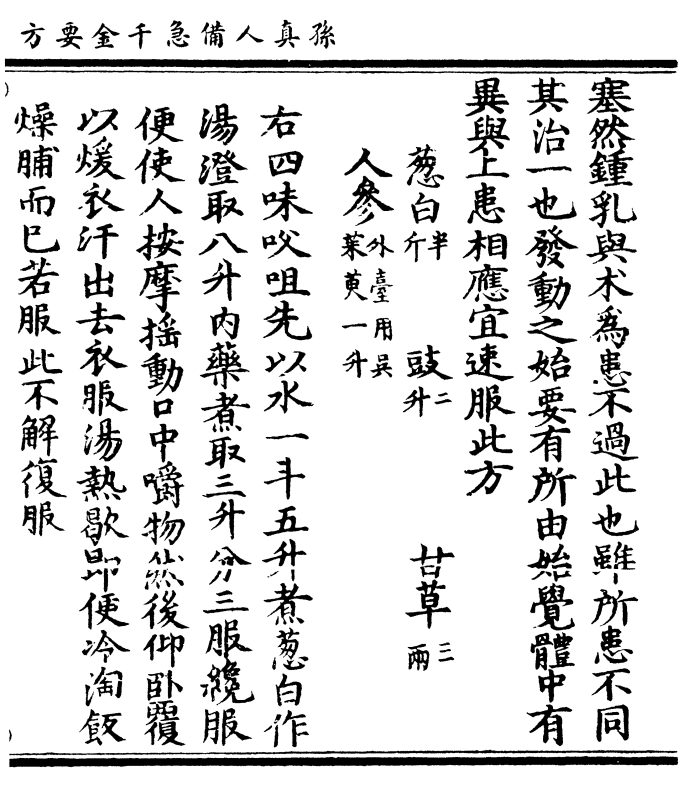 孫真人備急千金要方
塞然鍾乳與术為患不過此也雖所患不同
其治一也發動之始要有所由始覺體中有
異與上患相應宜速服此方
葱白半斤 豉二升 甘草三兩
人參外臺用吳茱萸一升
右四味㕮咀先以水一斗五升煮葱白作
湯澄取八升內藥煮取三升分三服纔服
便使人按摩揺動口中嚼物然後仰卧覆
以煖衣汗出去衣服湯熱歇即便冷淘飯
燥脯而已若服此不解復服